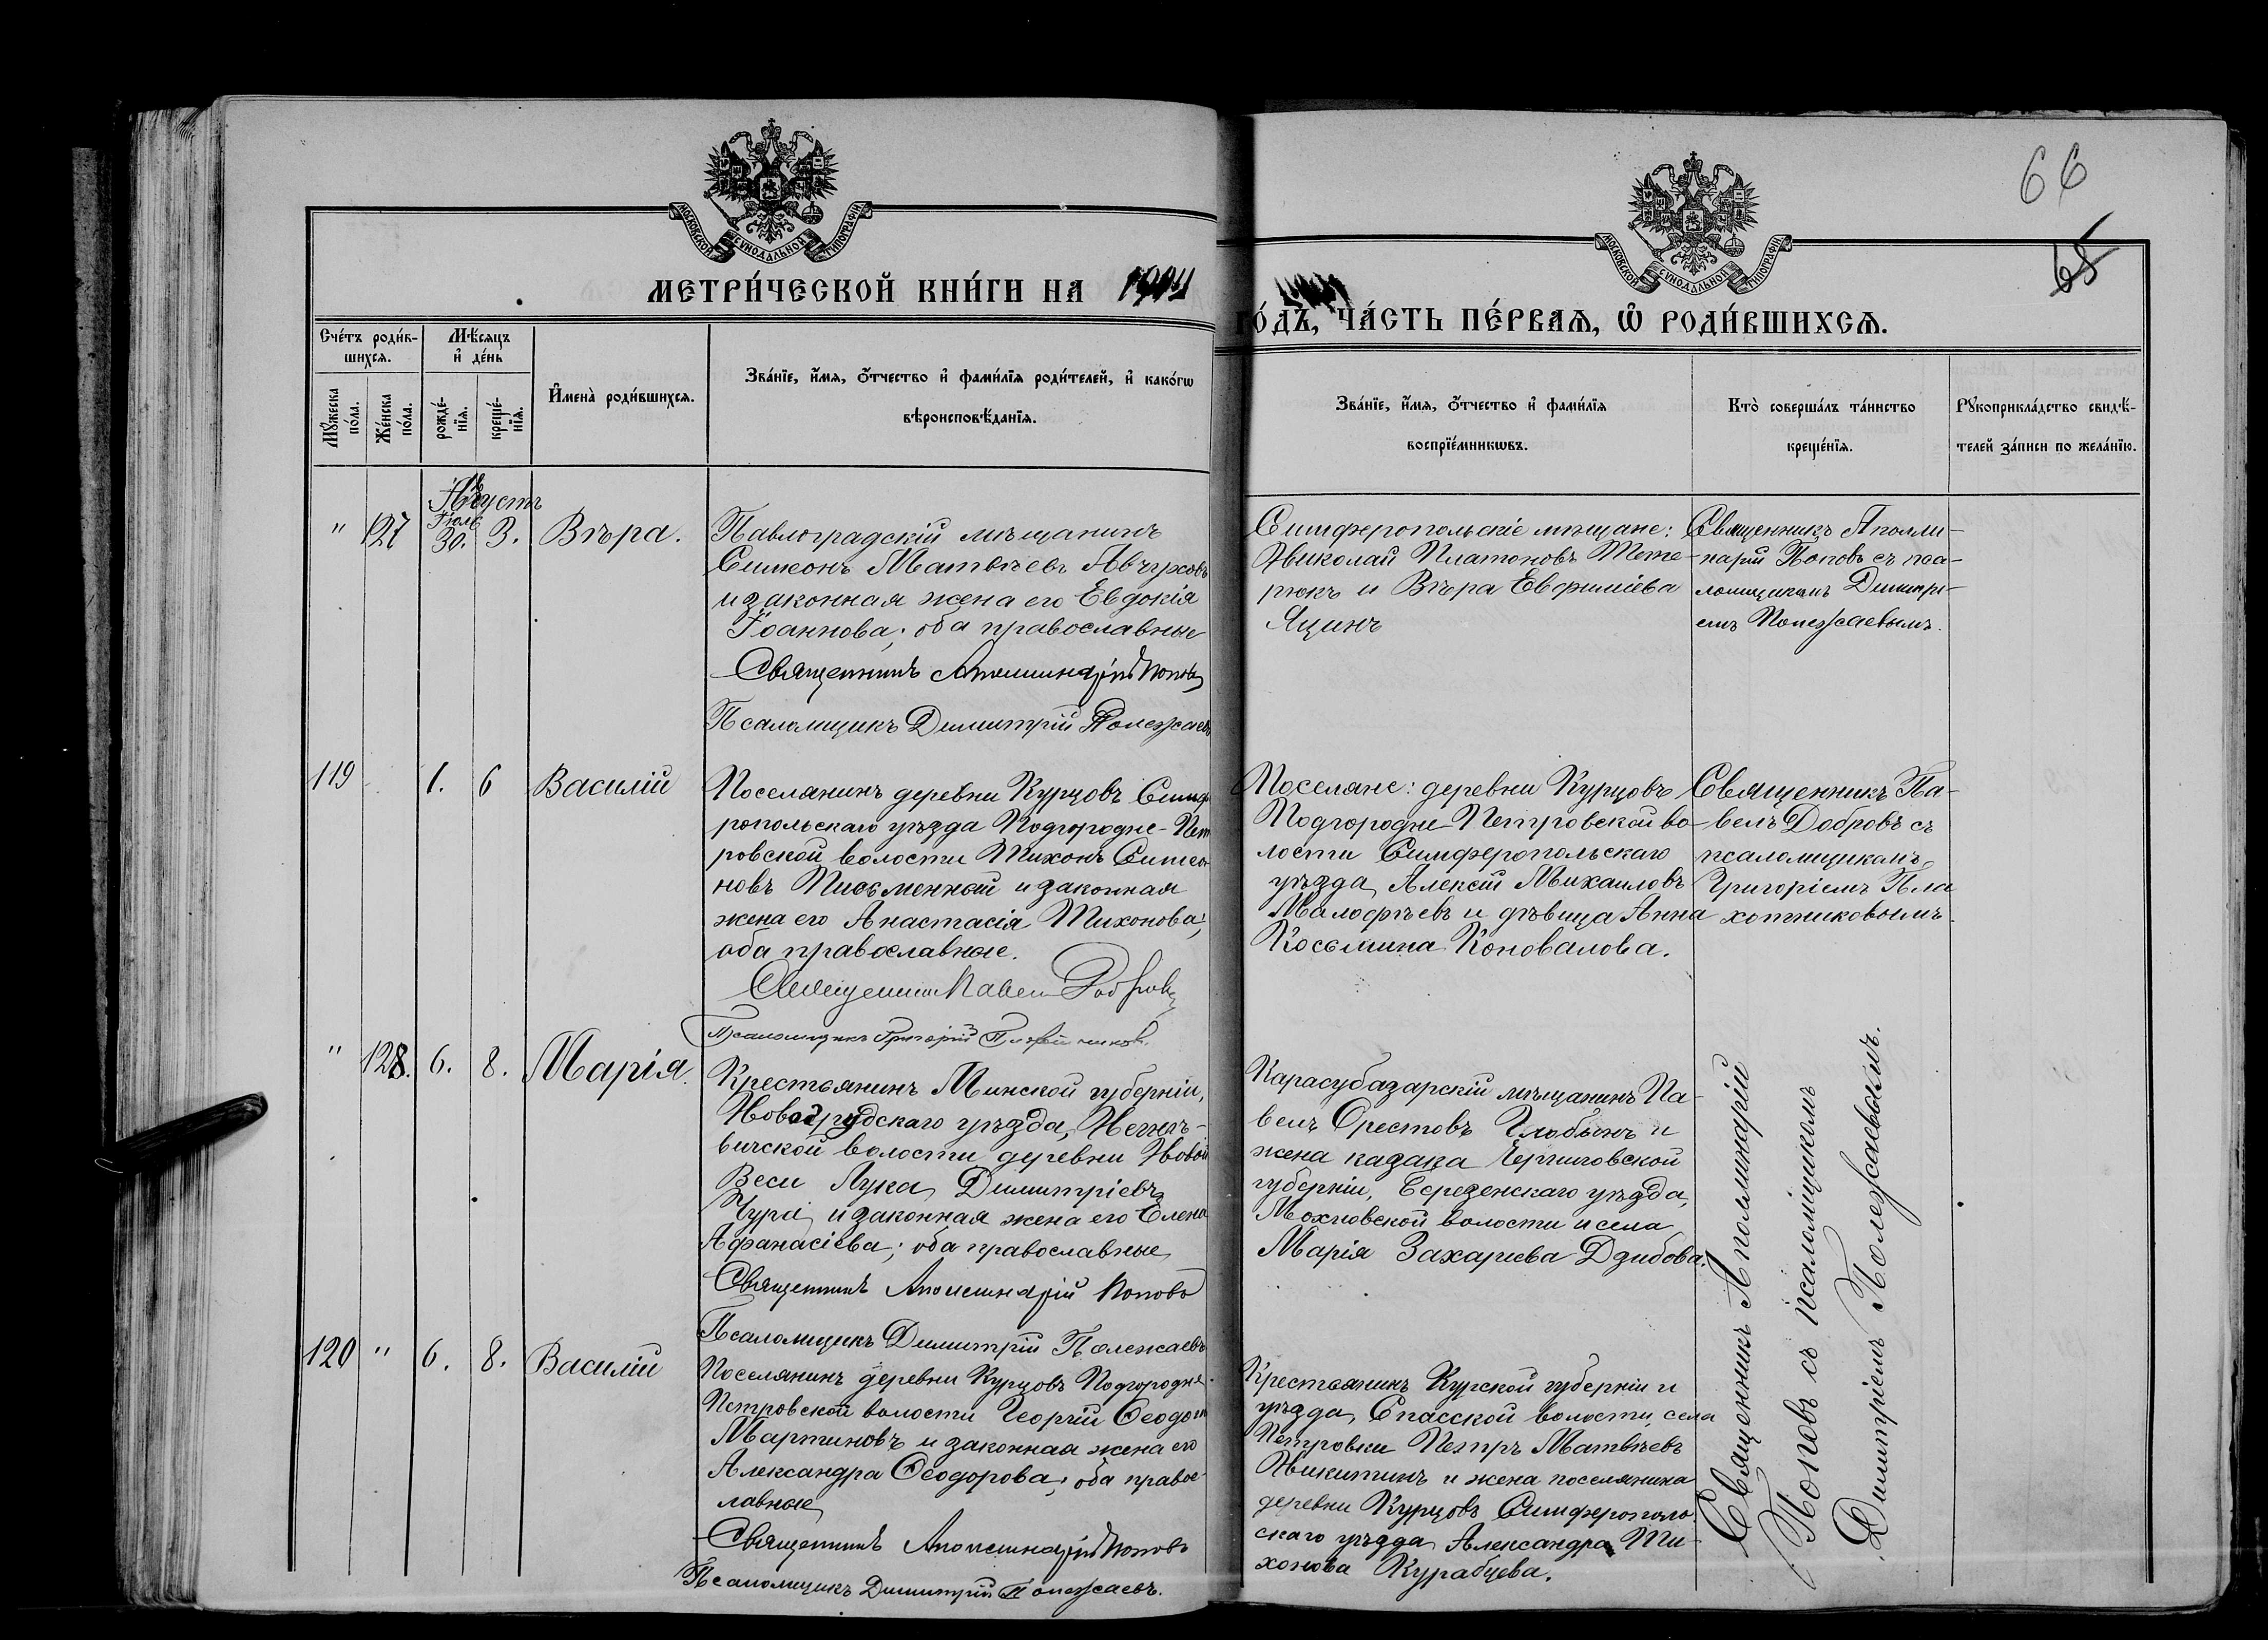 66
65
МОСКОВСКОЙ СѴНОДАЛЬНОЙ ТИПОГРАФІИ
МОСКОВСКОЙ СѴНОДАЛЬНОЙ ТИПОГРАФІИ
МЕТРИ́ЧЕСКОЙ КНИ́ГИ НА 1904
ГО́ДЪ, ЧА́СТЬ ПЕ́РВАѦ, Ѽ РОДИ́ВШИХСѦ.
Сче́тъ роди́в-
шихсѧ.
Мꙋ́жеска по́ла.
Же́нска по́ла.
Мѣ́сѧцъ
и҆ де́нь
рожде́-
нїѧ.
креще́-
нїѧ.
И҆мена̀ роди́вшихсѧ.
Зва́нїе, и҆́мѧ, ѻ҆́тчество и҆ фами́лїѧ роди́телей, и҆ како́гѡ
вѣроисповѣ́данїѧ.
Зва́нїе, и҆́мѧ, ѻ҆́тчество и҆ фами́лїѧ
воспрїе́мникѡвъ.
Кто̀ соверша́лъ та́инство
креще́нїѧ.
Рꙋкоприкла́дство свидѣ́-
телей за́писи по жела́нїю.
Августъ
" 127 Іюль 30. 3. Вѣра.
Павлоградскій мѣщанинъ
Симеонъ Матвѣевъ
и законная жена его Евдокія
Іоаннова; оба православные
Священникъ Аполлинарій Поповъ
Псаломщикъ Димитрій Полежаевъ
Симферопольскіе мѣщане:
Николай Платоновъ Тете-
рюкъ и Вѣра Евфиміева
Яцинъ
Священникъ Аполли-
нарій Поповъ съ пса-
ломщикомъ Димитрі-
емъ Полежаевымъ.
119 1. 6 Василій
Поселянинъ деревни Курцовъ Симфе
ропольскаго уѣзда Подгородне-Пет
ровской волости Тихонъ Симео
новъ Письменный и законная
жена его Анастасія Тихонова;
оба православные.
Священникъ Павелъ Добровъ
Псаломщикъ Григорій
Поселяне: деревни Курцовъ
Подгородне Петровской во
лости Симферопольскаго
уѣзда Алексій Михаиловъ
Малофѣевъ и дѣвица Анна
Косьмина Коновалова.
Священникъ Па-
велъ Добровъ съ
псаломщикомъ
Григоріемъ Пла
хотниковымъ.
" 128. 6. 8. Марія.
Крестьянинъ Минской губерніи,
Новогрудскаго уѣзда,
вичской волости деревни Новой
Веси Лука Димитріевъ
и законная жена его Елена
Афанасіева; оба православные
Священникъ Аполлинарій Поповъ
Псаломщикъ Димитрій Полежаевъ
Карасубазарскій мѣщанинъ Па-
велъ Орестовъ и
жена казака Черниговской
губерніи, уѣзда,
волости и села
Марія Захаріева Дзюбова.
120 " 6. 8. Василій
Поселянинъ деревни Курцовъ Подгородне
Петровской волости Георгій Ѳеодот
Мартиновъ и законная жена его
Александра Ѳеодорова; оба право-
лавные
Священникъ Аполлинарій Поповъ
Псаломщикъ Димитрій Полежаевъ.
Крестьянинъ Курской губерніи и
уѣзда, Спасской волости, села
Петровки Петръ Матвѣевъ
Никитинъ и жена поселянина
деревни Курцовъ Симферополь
скаго уѣзда Александра Ти-
хонова Курабцева.
Священникъ Аполлинарій
Поповъ съ псаломщикомъ
Димитріемъ Полежаевымъ.